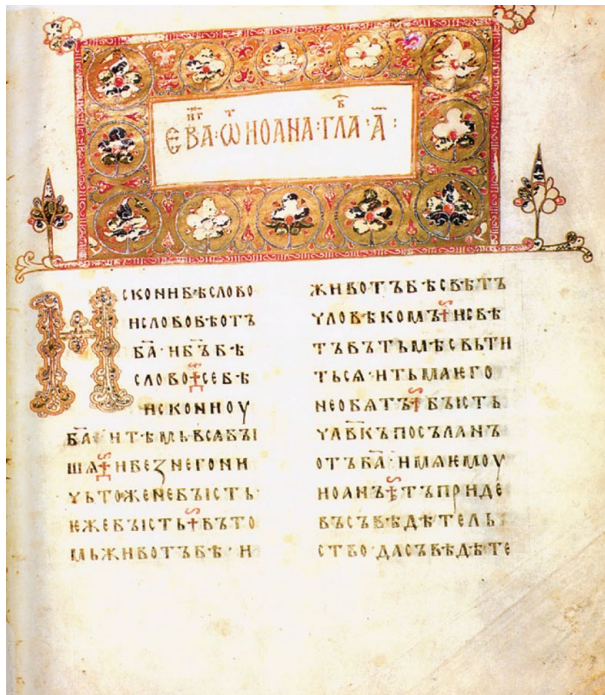 ЕВА·ѾИОАНА·ГЛА·А҃:
ИСКОНИБѢСЛОВО
ИСЛОВОБѢОТЪ
БА҃·ИБЪ҃БѢ
СЛОВО·СЕБѢ
ИСКОНИОУ
БА҃·ИТѢМЬВСѦБЫ
ШѦ·ИБЕЗНЕГОНИ
ЧЬТОЖЕНЕБЫСТЬ·
ѤЖЕБЫСТЬ·ВЪТО
МЬЖИВОТЪБѢ·И
ЖИВОТЪБѢСВѢТЪ
ЧЛОВѢКОМЪ·ИСВѢ
ТЪВЪТЬМѢСВЬТИ
ТЬСѦ·ИТЬМАѤГО
НЕОБѦТЪ·БЫСТЬ
ЧЛ҃ВКЪПОСЪЛАНЪ
ОТЪБА҃·ИМѦѤМОУ
ИОАНЪ·ТЪПРИДЕ
ВЪСЪВѢДѢТЕЛЬ
СТВО·ДАСЪВѢДѢТЕ